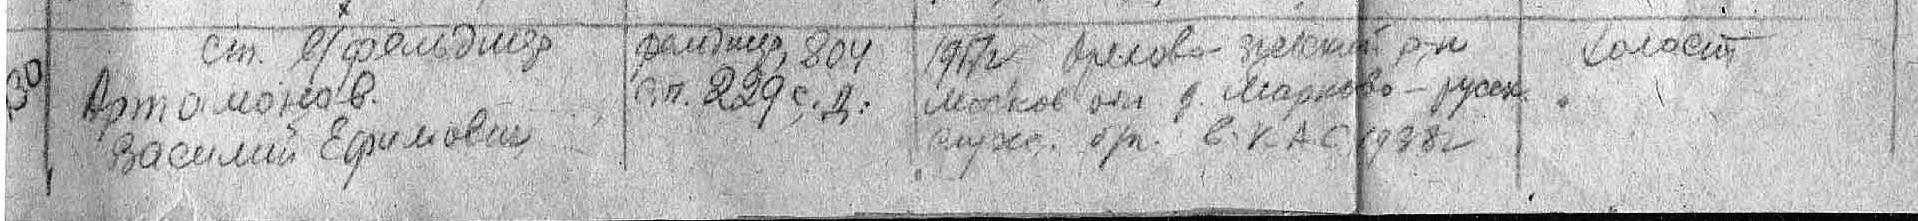 130
ст. в/фельдшер
Артамонов.
Василий Ефимович
фельдшер 804
с.п. 229 с.д.
Орехово-Зуевский р-н
Москов обл д. Марково - русск.
служ. обр. в КАС 1938г
Холост